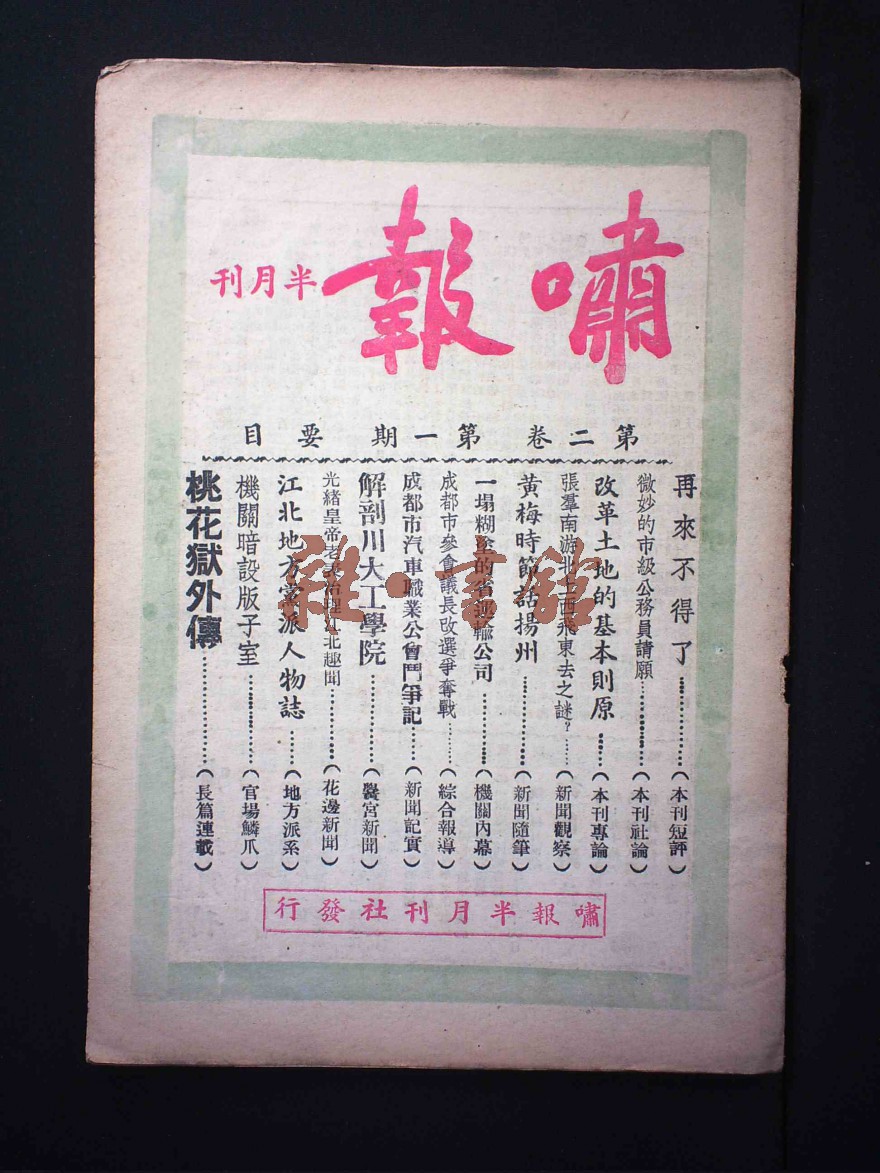 嘯報
半月刊
第二卷 第一期 要目
再來不得了…………(本刊短評)
微妙的市級公務員請願…………(本刊社論)
改革土地的基本則原……(本刊專論)
張羣南游北上西飛東去之謎?……(新聞觀察)
黃梅時節話揚州…………(新聞隨筆)
一塌糊塗的省運輸公司…………(機關內幕)
成都市參會議長改選爭奪戰………(綜合報導)
成都市汽車職業公會鬥爭記……(新聞記實)
解剖川大工學院…………(黌宮新聞)
光緒皇帝老表治理江北趣聞…………(花邊新聞)
江北地方黨派人物誌……(地方派系)
機關暗設版子室…………(官場鱗爪)
桃花獄外傳…………(長篇連載)
嘯報半月刊社發行
雜·書館